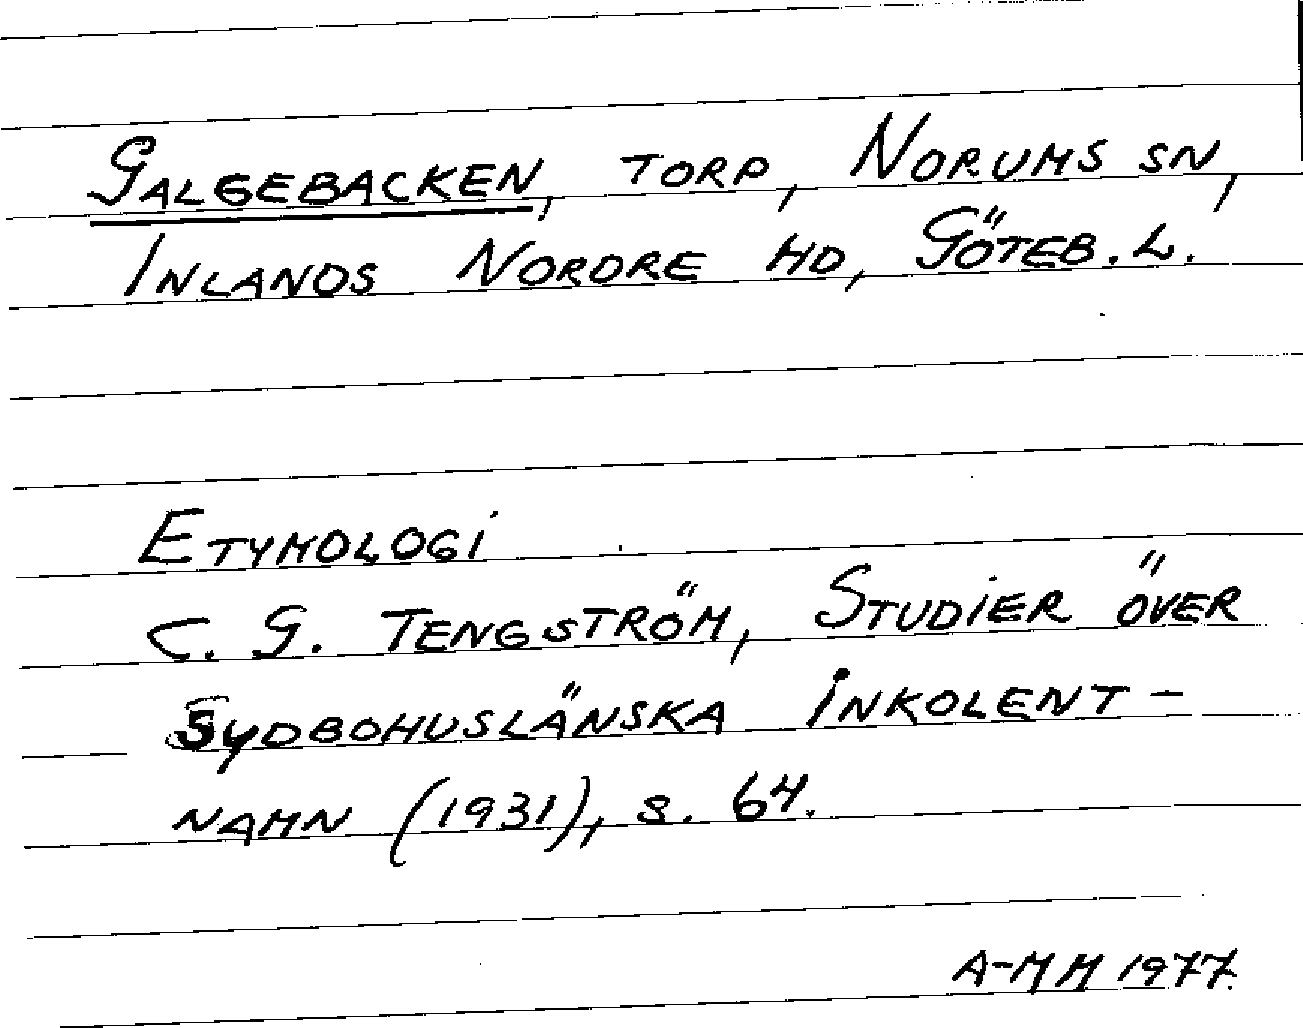 GALGEBACKEN, TORP, NORUMS SN,
INLANDS NORDRE HD, GÖTEB. L.
ETYMOLOGI
C. G. TENGSTRÖM, STUDIER ÖVER
SYDBOHUSLÄNSKA INKOLENT-
NAMN (1931), s. 64.
A-MM 1977.